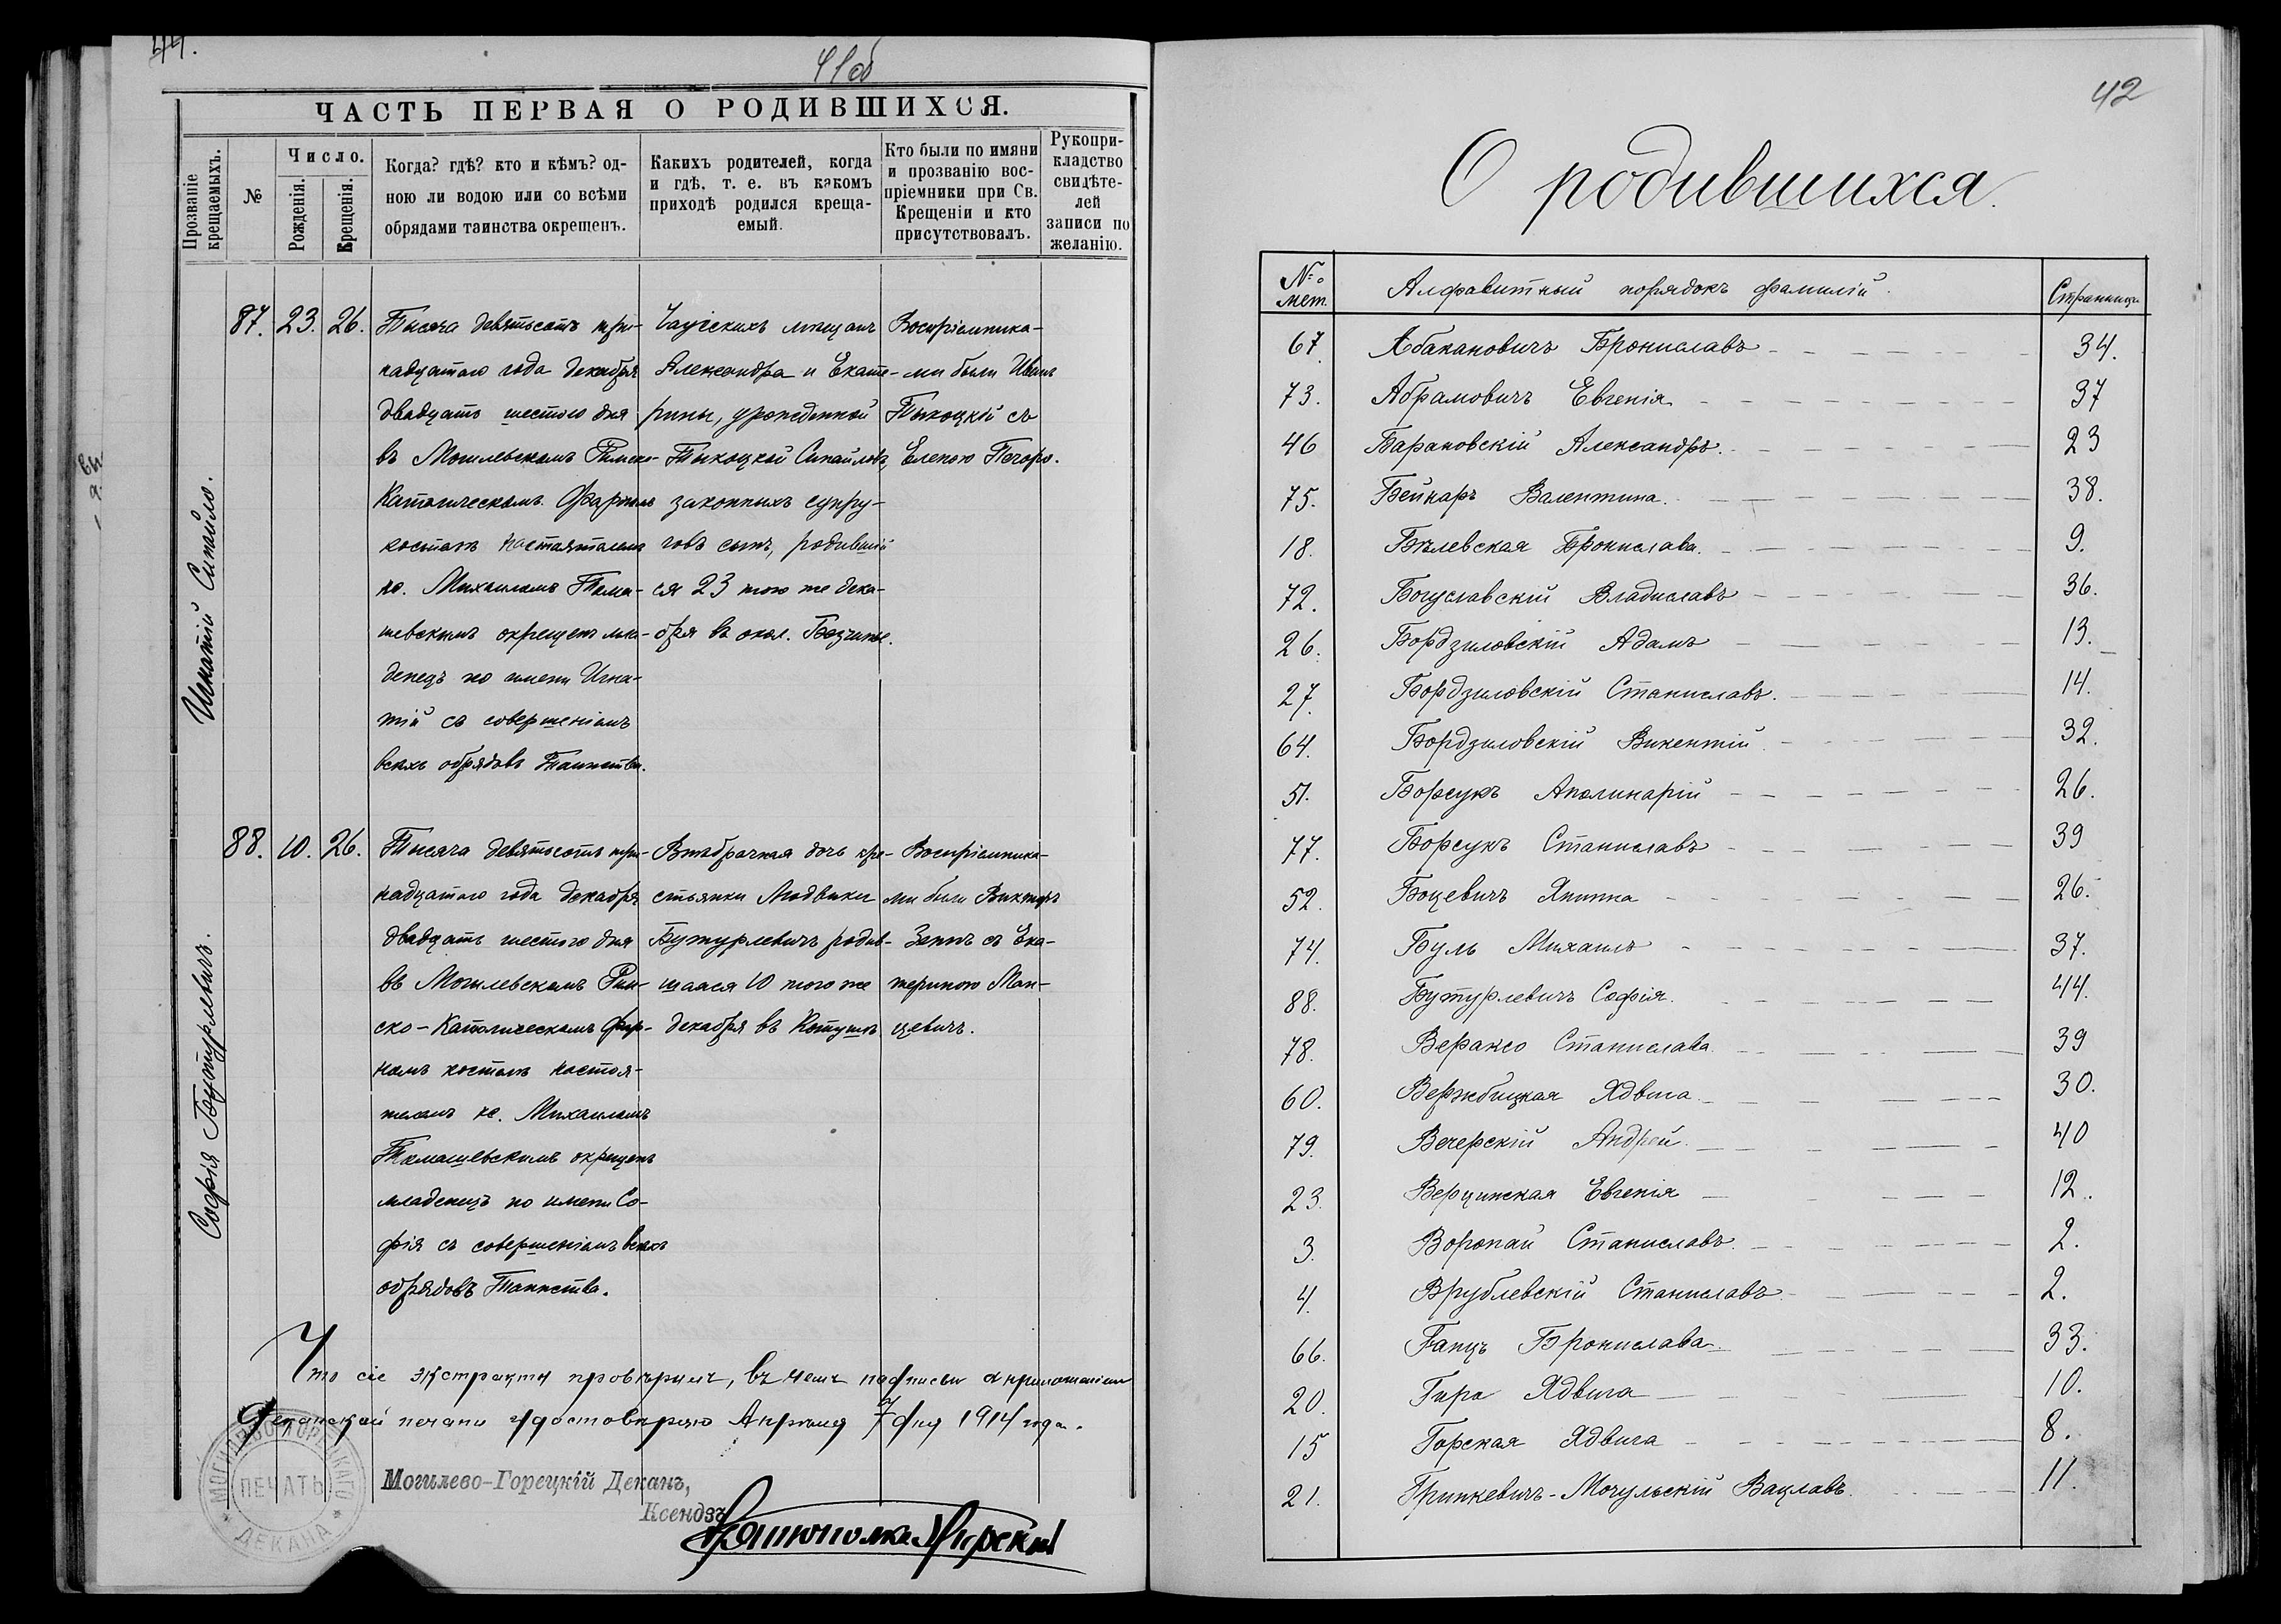 44.
41об
ЧАСТЬ ПЕРВАЯ О РОДИВШИХСЯ.
Прозваніе крещаемыхъ.
№
Число.
Рожденія.
Крещенія.
Когда? гдѣ? кто и кѣмъ? од-
ною ли водою или со всѣми
обрядами таинства окрещенъ.
Какихъ родителей, когда
и гдѣ, т. е. въ какомъ
приходѣ родился креща-
емый.
Кто были по имяни
и прозванію вос-
пріемники при Св.
Крещеніи и кто
присутствовалъ.
Рукопри-
кладство
свидѣте-
лей
записи по
желанію.
Игнатій Сипайло.
87. 23. 26.
Тысяча девятьсотъ три-
надцатаго года декабря
двадцать шестого дня
въ Могилевскомъ Римско-
Католическомъ Фарномъ
костелѣ настоятелемъ
кс. Михаиломъ Тома-
шевскимъ окрещенъ мла-
денецъ по имени Игна-
тій съ совершеніемъ
всѣхъ обрядовъ Таинства.
Чаусскихъ мещанъ
Александра и Екате-
рины, урожденной
Тыкоцкой Сипайловъ,
законныхъ супру-
говъ сынъ, родившій
ся 23 того же дека-
бря въ окол.
Воспріемника-
ми были Иванъ
Тыкоцкій съ
Еленою
Софія Бутурлевичъ.
88. 10. 26.
Тысяча девятьсотъ три-
надцатаго года декабря
двадцать шестого дня
въ Могилевскомъ Рим-
ско-Католическомъ фар-
номъ костелѣ настоя-
телемъ кс. Михаиломъ
Томашевскимъ окрещенъ
младенецъ по имени Со-
фія съ совершеніемъ всѣхъ
обрядовъ Таинства.
Внѣбрачная дочь кре-
стьянки Людвики
Бутурлевичъ родив-
шаяся 10 того же
декабря въ
Воспріемника-
ми были Викторъ
съ Ека-
териною Ман-
цевичъ.
Что сіе экстракты провѣрилъ, въ чемъ подписью и приложеніемъ
Деканской печати удостовѣряю Апрѣля 7 дня 1914 года.
МОГИЛЕВО-ГОРЕЦКАГО
ПЕЧАТЬ
ДЕКАНА
Могилево-Горецкій Деканъ,
Ксендзъ
42
О родившихся.
№ мет.
Алфавитный порядокъ фамилій.
Страницы
67. Абакановичъ Брониславъ 34.
73. Абрамовичъ Евгенія 37
46 Барановскій Александръ. 23
75. Бейнаръ Валентина. 38.
18. Бѣлевская Бронислава. 9.
72. Богуславскій Владиславъ 36.
26. Бордзиловскій Адамъ 13.
27. Бордзиловскій Станиславъ. 14.
64. Бордзиловскій Викентій 32.
51. Борсукъ Аполинарій 26.
77. Борсукъ Станиславъ 39
52. Боцевичъ Янина 26.
74. Буль Михаилъ 37.
88. Бутурлевичъ Софія. 44.
78. Вераксо Станислава. 39
60. Вержбицкая Ядвига. 30.
79. Вечерскій Андрей. 40
23. Верцинская Евгенія 12.
3. Воропай Станиславъ. 2.
4. Врублевскій Станиславъ 2.
66. Ганцъ Бронислава. 33.
20. Гиро Ядвига 10.
15 Горская Ядвига 8.
21. Гринкевичъ-Мочульскій Вацлавъ. 11.